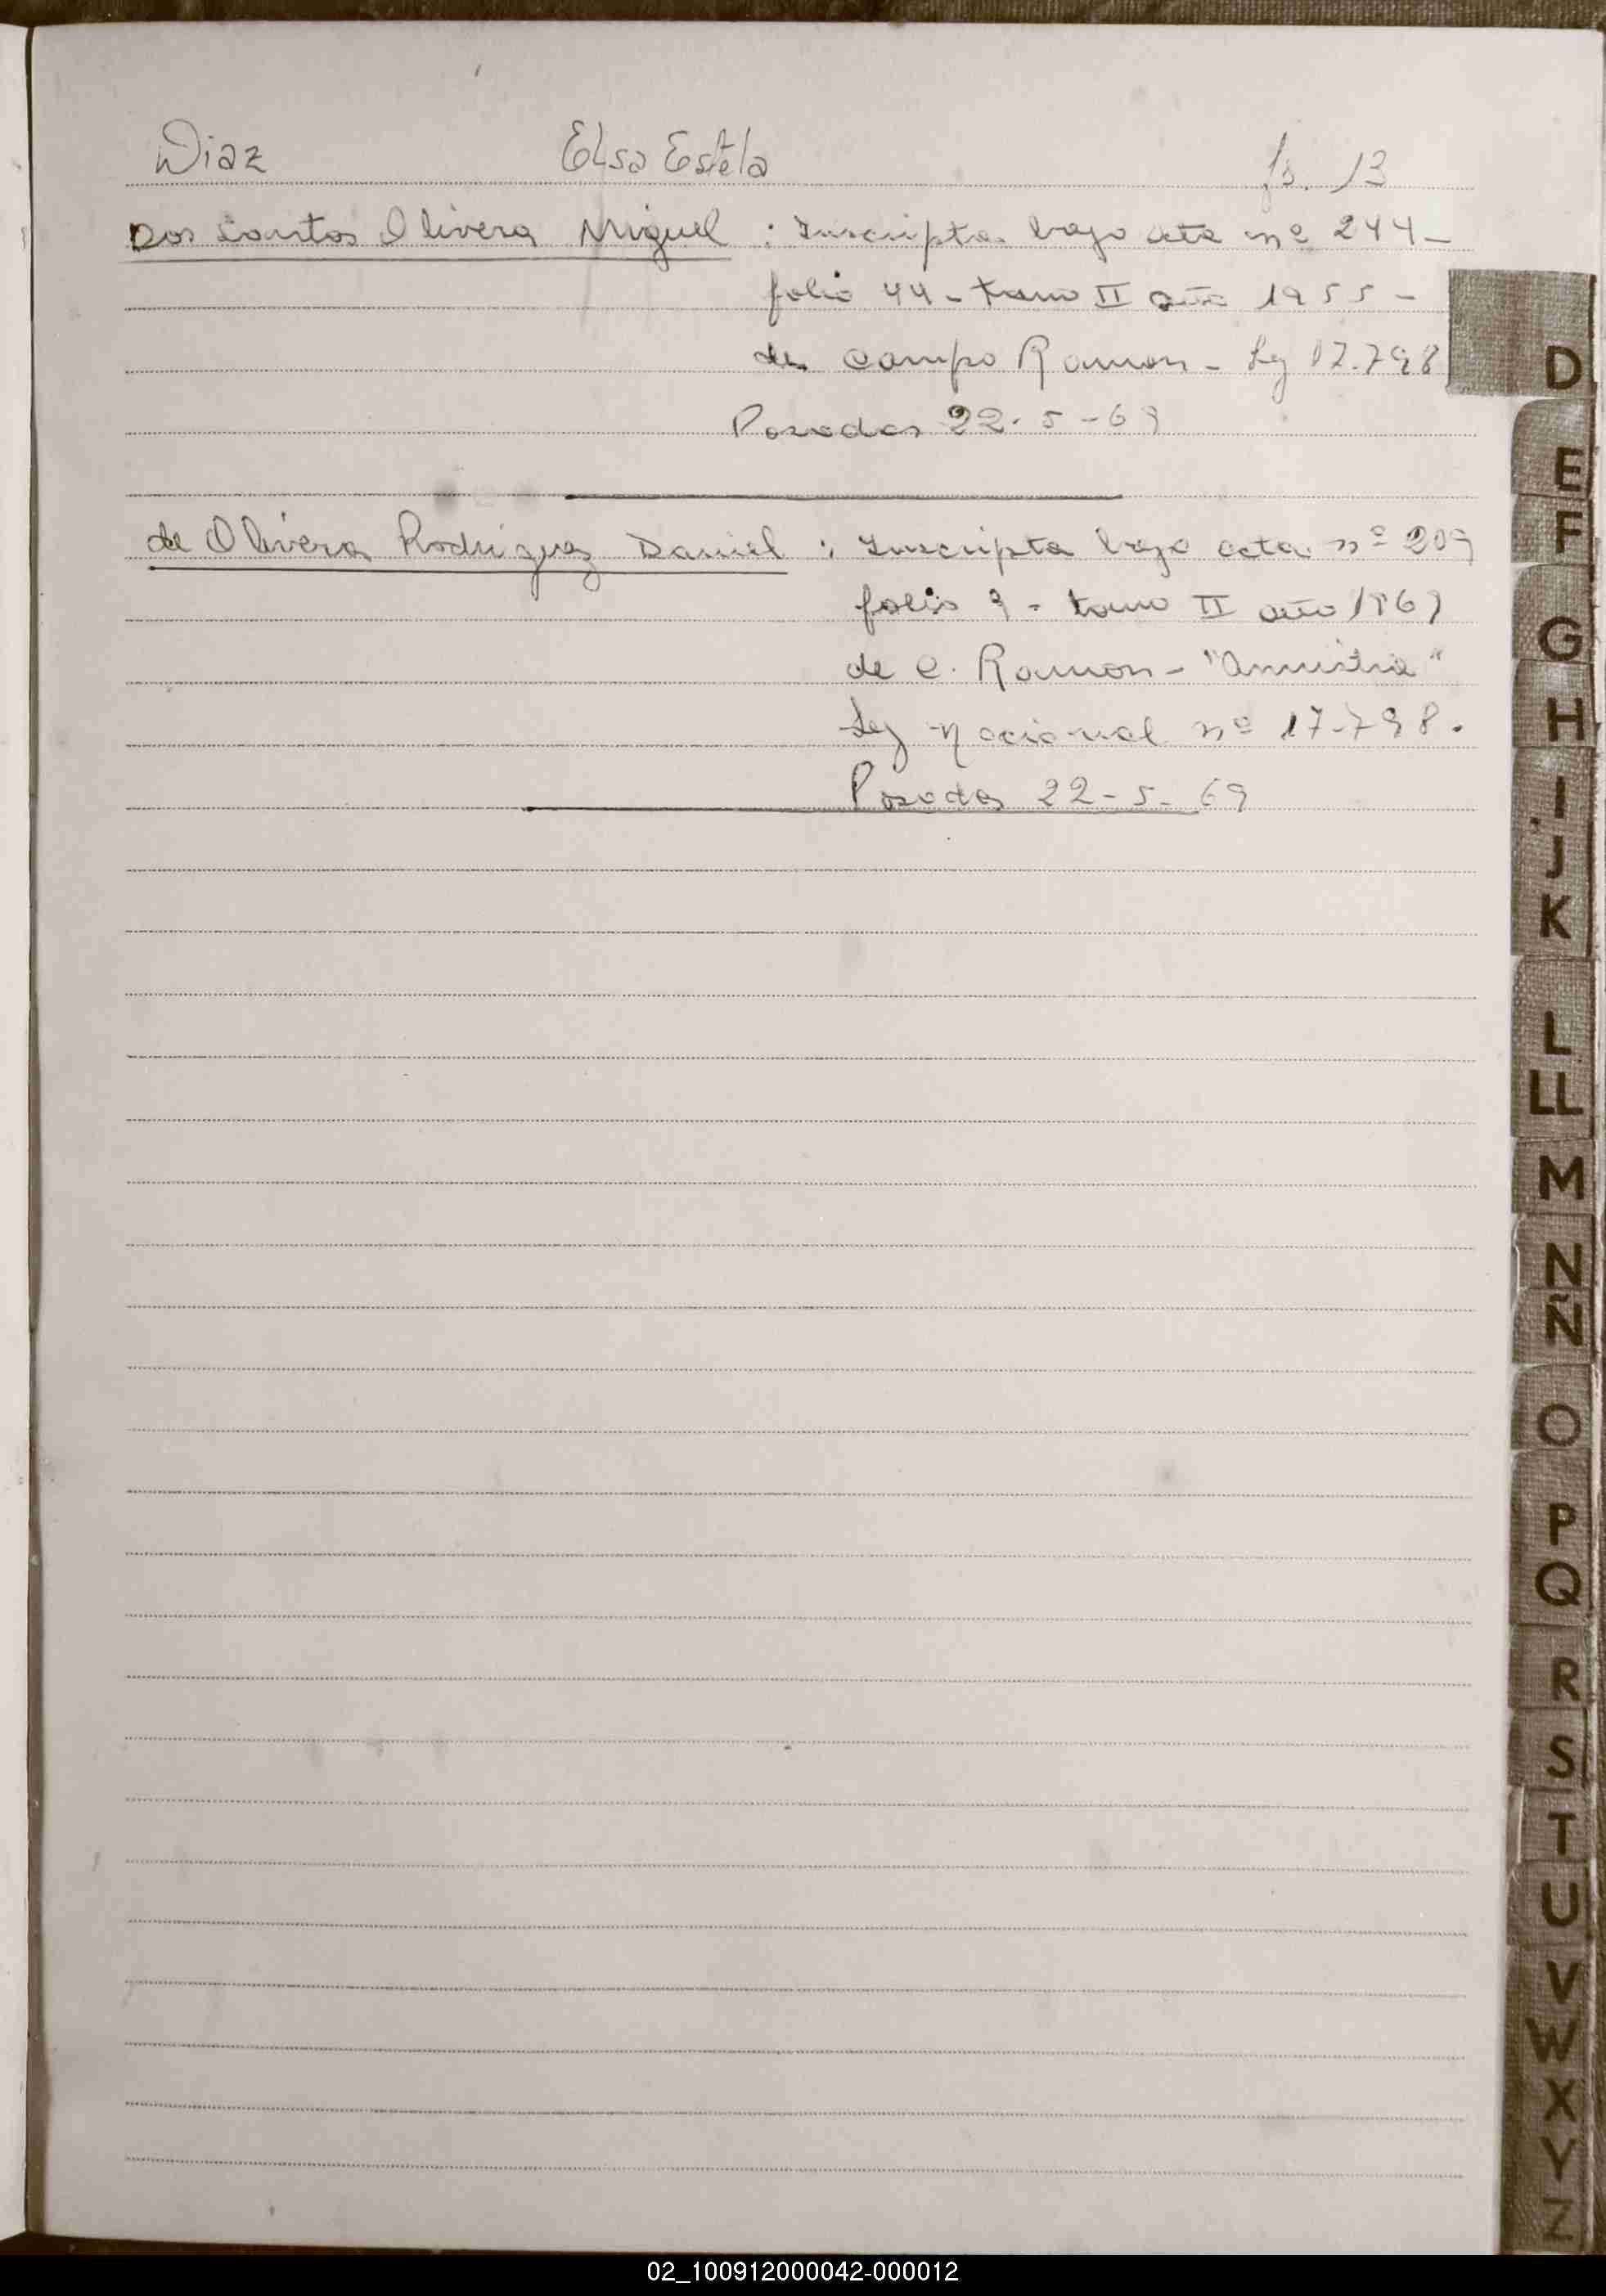 Diaz Elsa Estela fs. 13
Dos Santos Olivera Miguel : Inscripta bajo acta nº 244-
folio 44 - tomo II año 1955 -
de Campo Ramon - Ley 17.798
Posadas 22-5-69
de Olivera Rodriguez Daniel : Inscripta bajo acta nº 209
folio 9 - tomo II año 1969
de C. Ramon - "Amnistia"
Ley Nacional nº 17.798.
Posadas 22-5-69
D
E
F
G
H
I
J
K
L
LL
M
N
Ñ
O
P
Q
R
S
T
U
V
W
X
Y
Z
02_100912000042-000012